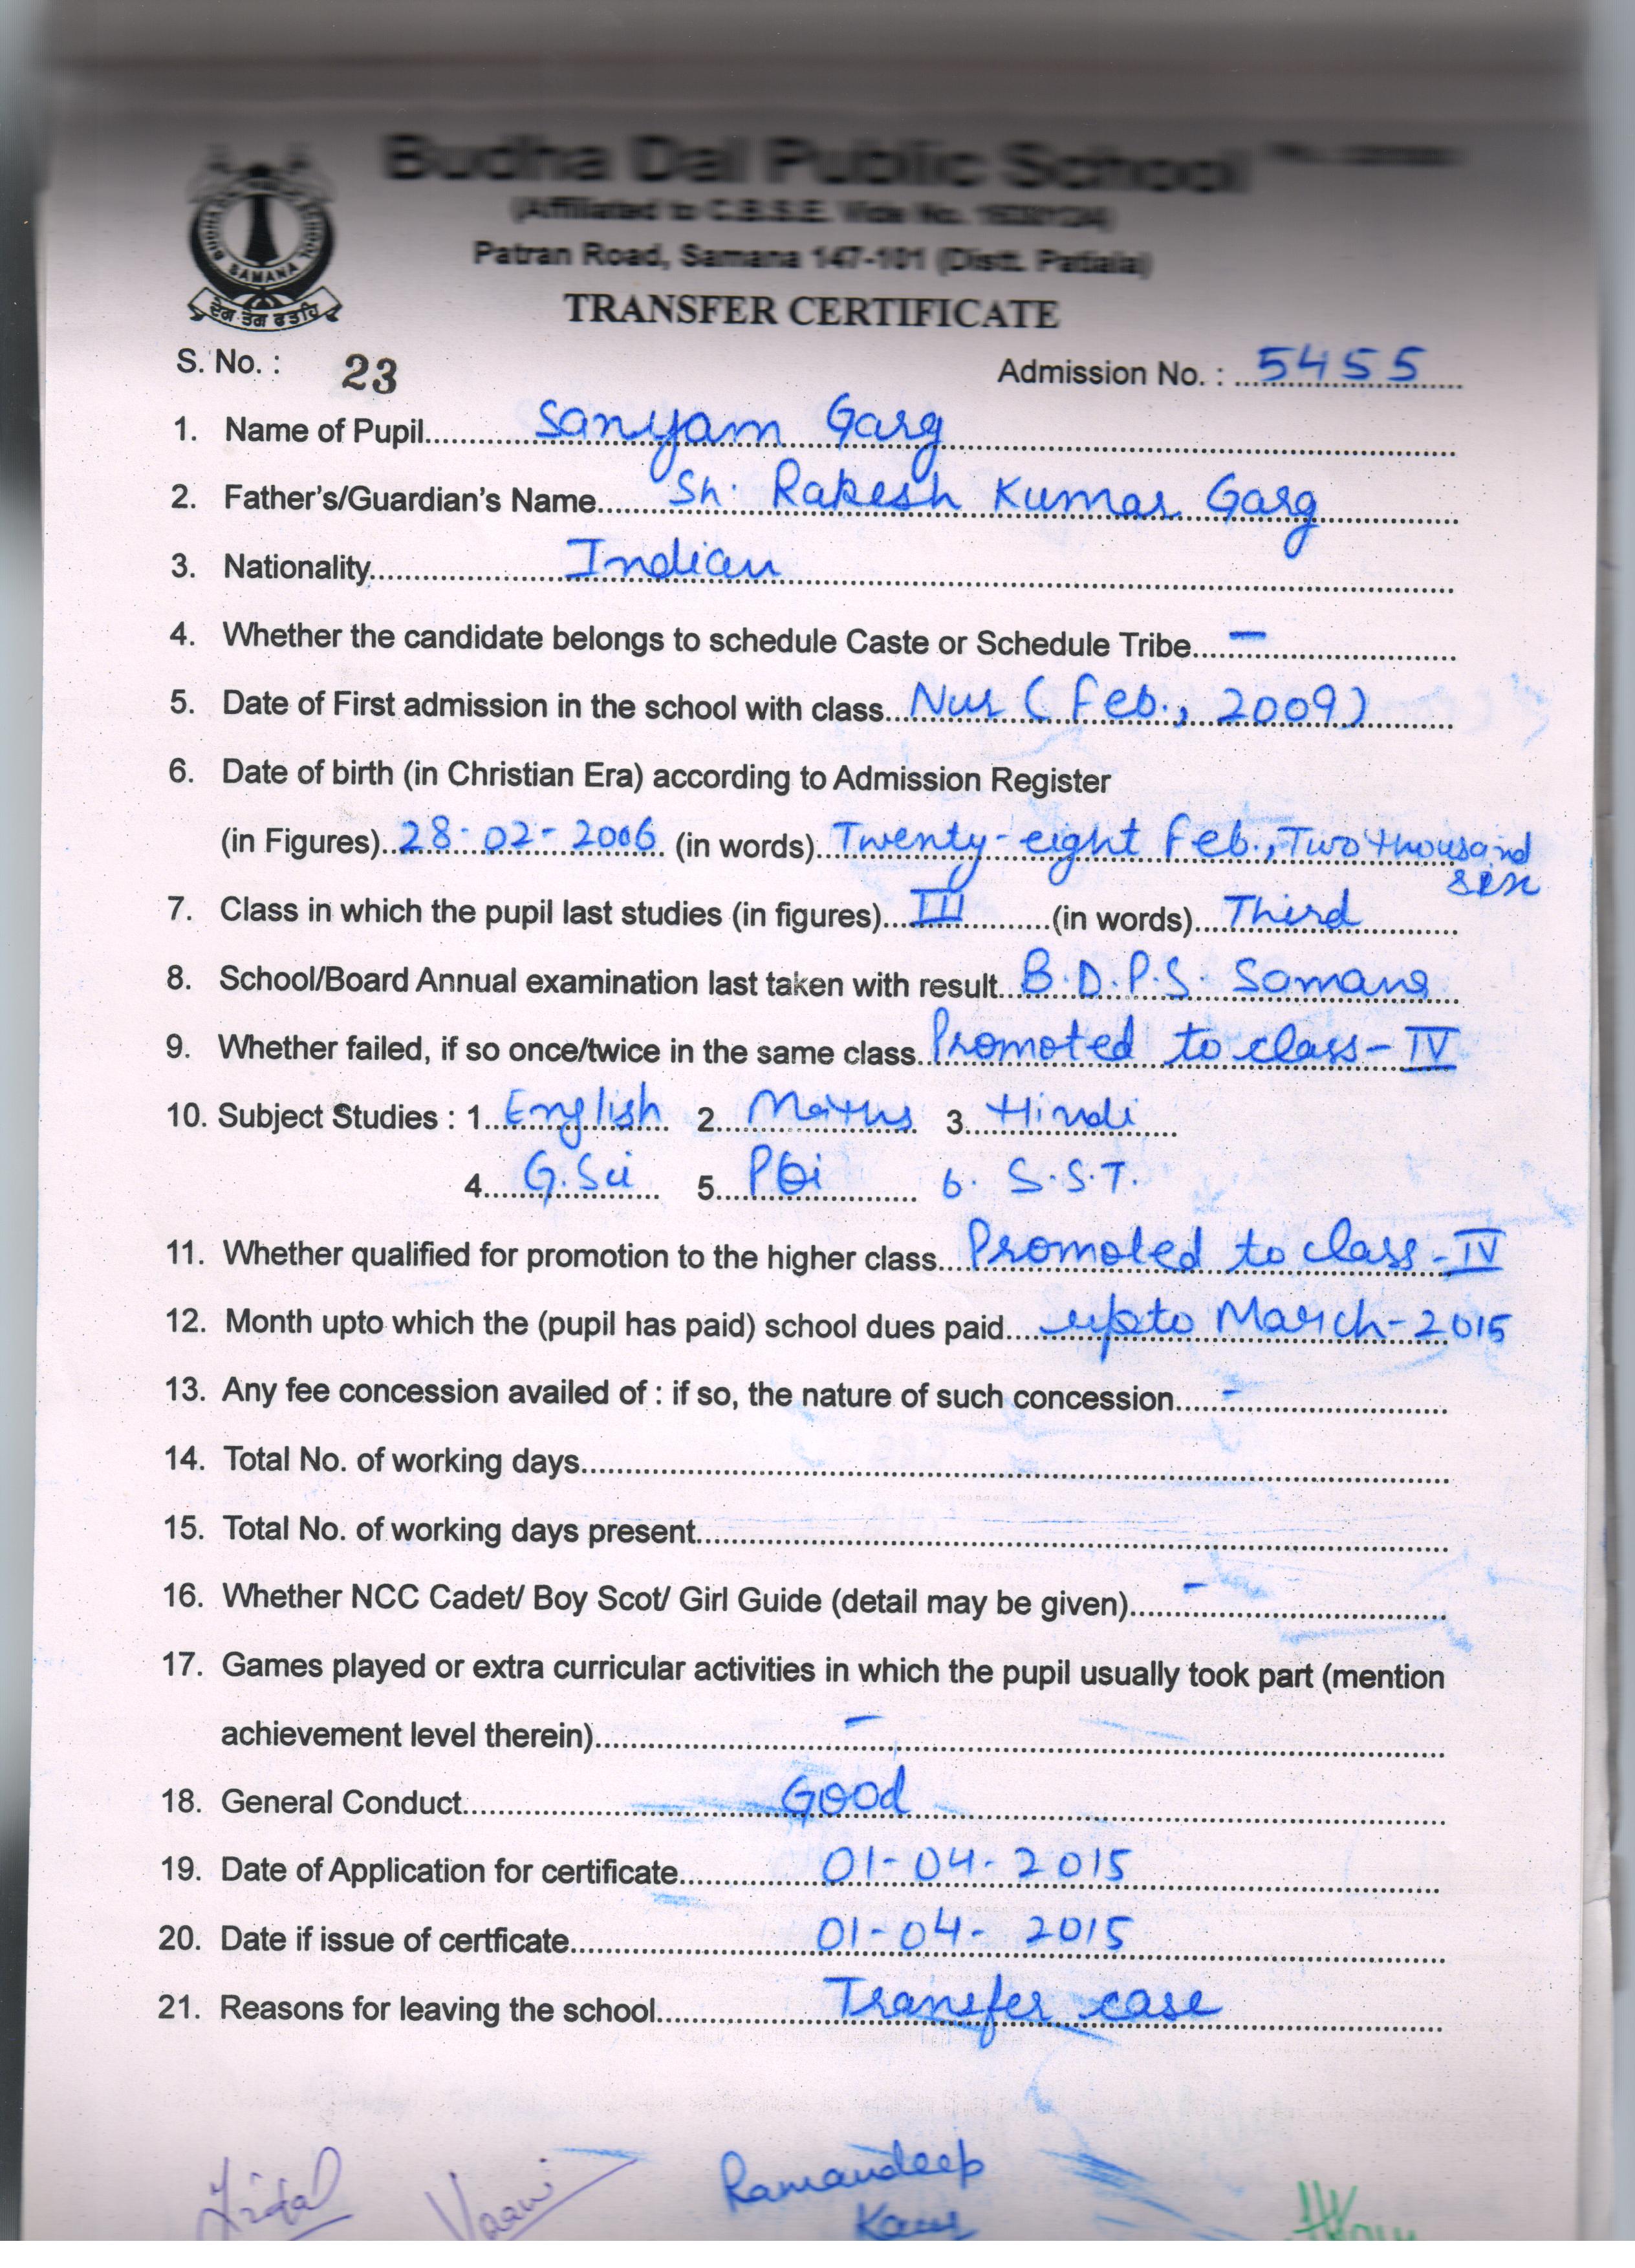 Budha Dal Public School
(Affiliated to C.B.S.E. Vide No.
Patran Road, Samana 147-101 (Distt. Patiala)
SAMANA
ਦੇਗ ਤੇਗ ਫਤਹਿ
TRANSFER CERTIFICATE
S. No. : 23 Admission No. : 5455
1. Name of Pupil Sanyam Garg
2. Father's/Guardian's Name Sh. Rakesh Kumar Garg
3. Nationality Indian
4. Whether the candidate belongs to schedule Caste or Schedule Tribe –
5. Date of First admission in the school with class Nur (Feb., 2009)
6. Date of birth (in Christian Era) according to Admission Register
(in Figures) 28-02-2006 (in words) Twenty-eight Feb., Two thousand
six
7. Class in which the pupil last studies (in figures) III (in words) Third
8. School/Board Annual examination last taken with result B.D.P.S. Samana
9. Whether failed, if so once/twice in the same class Promoted to class-IV
10. Subject Studies : 1. English 2. Maths 3. Hindi
4. G.Sci 5. Pbi 6. S.S.T.
11. Whether qualified for promotion to the higher class Promoted to class-IV
12. Month upto which the (pupil has paid) school dues paid upto March-2015
13. Any fee concession availed of : if so, the nature of such concession -
14. Total No. of working days
15. Total No. of working days present
16. Whether NCC Cadet/ Boy Scot/ Girl Guide (detail may be given) -
17. Games played or extra curricular activities in which the pupil usually took part (mention
achievement level therein) -
18. General Conduct Good
19. Date of Application for certificate 01-04-2015
20. Date if issue of certficate 01-04-2015
21. Reasons for leaving the school Transfer case
Vaani Ramandeep
Kaur